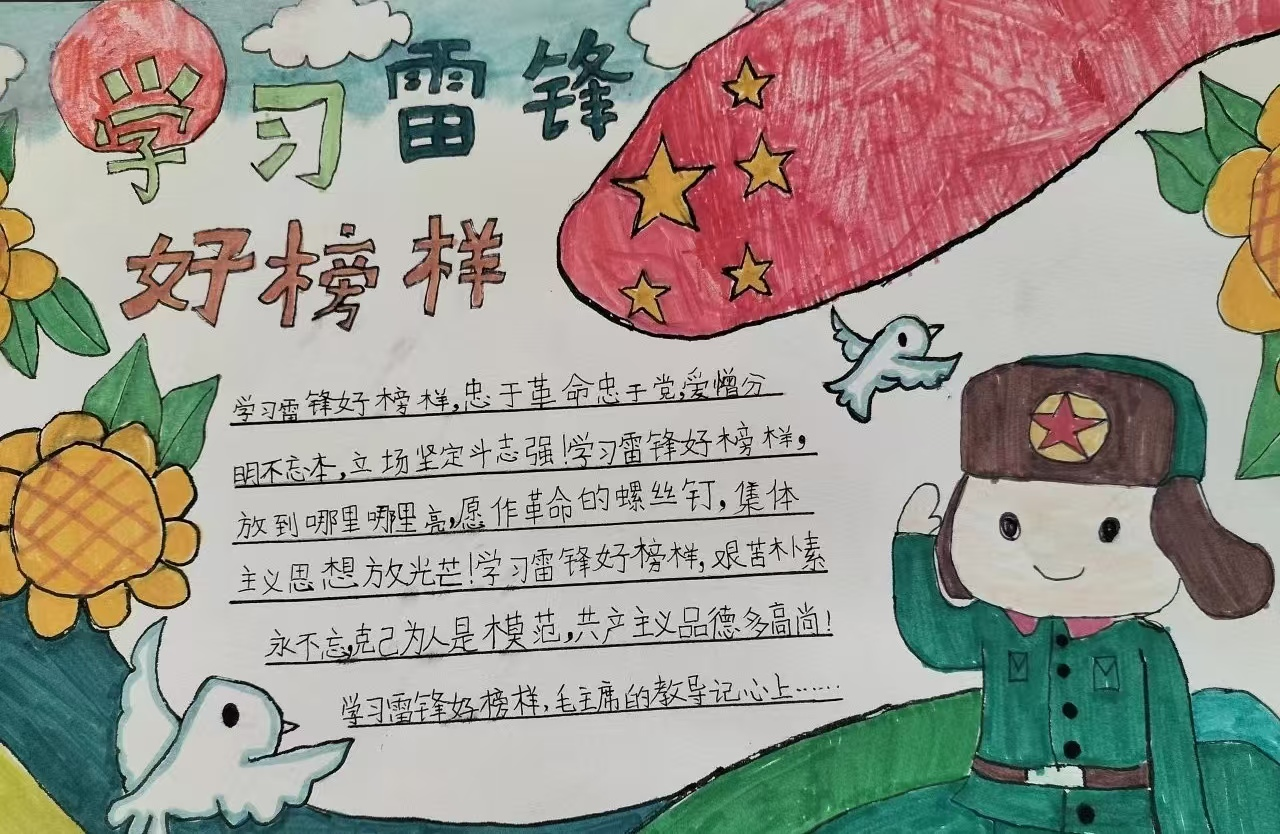 学习雷锋
好榜样
学习雷锋好榜样,忠于革命忠于党,爱憎分
明不忘本,立场坚定斗志强!学习雷锋好榜样,
放到哪里哪里亮,愿作革命的螺丝钉,集体
主义思想放光芒!学习雷锋好榜样,艰苦朴素
永不忘,克己为人是模范,共产主义品德多高尚!
学习雷锋好榜样,毛主席的教导记心上……